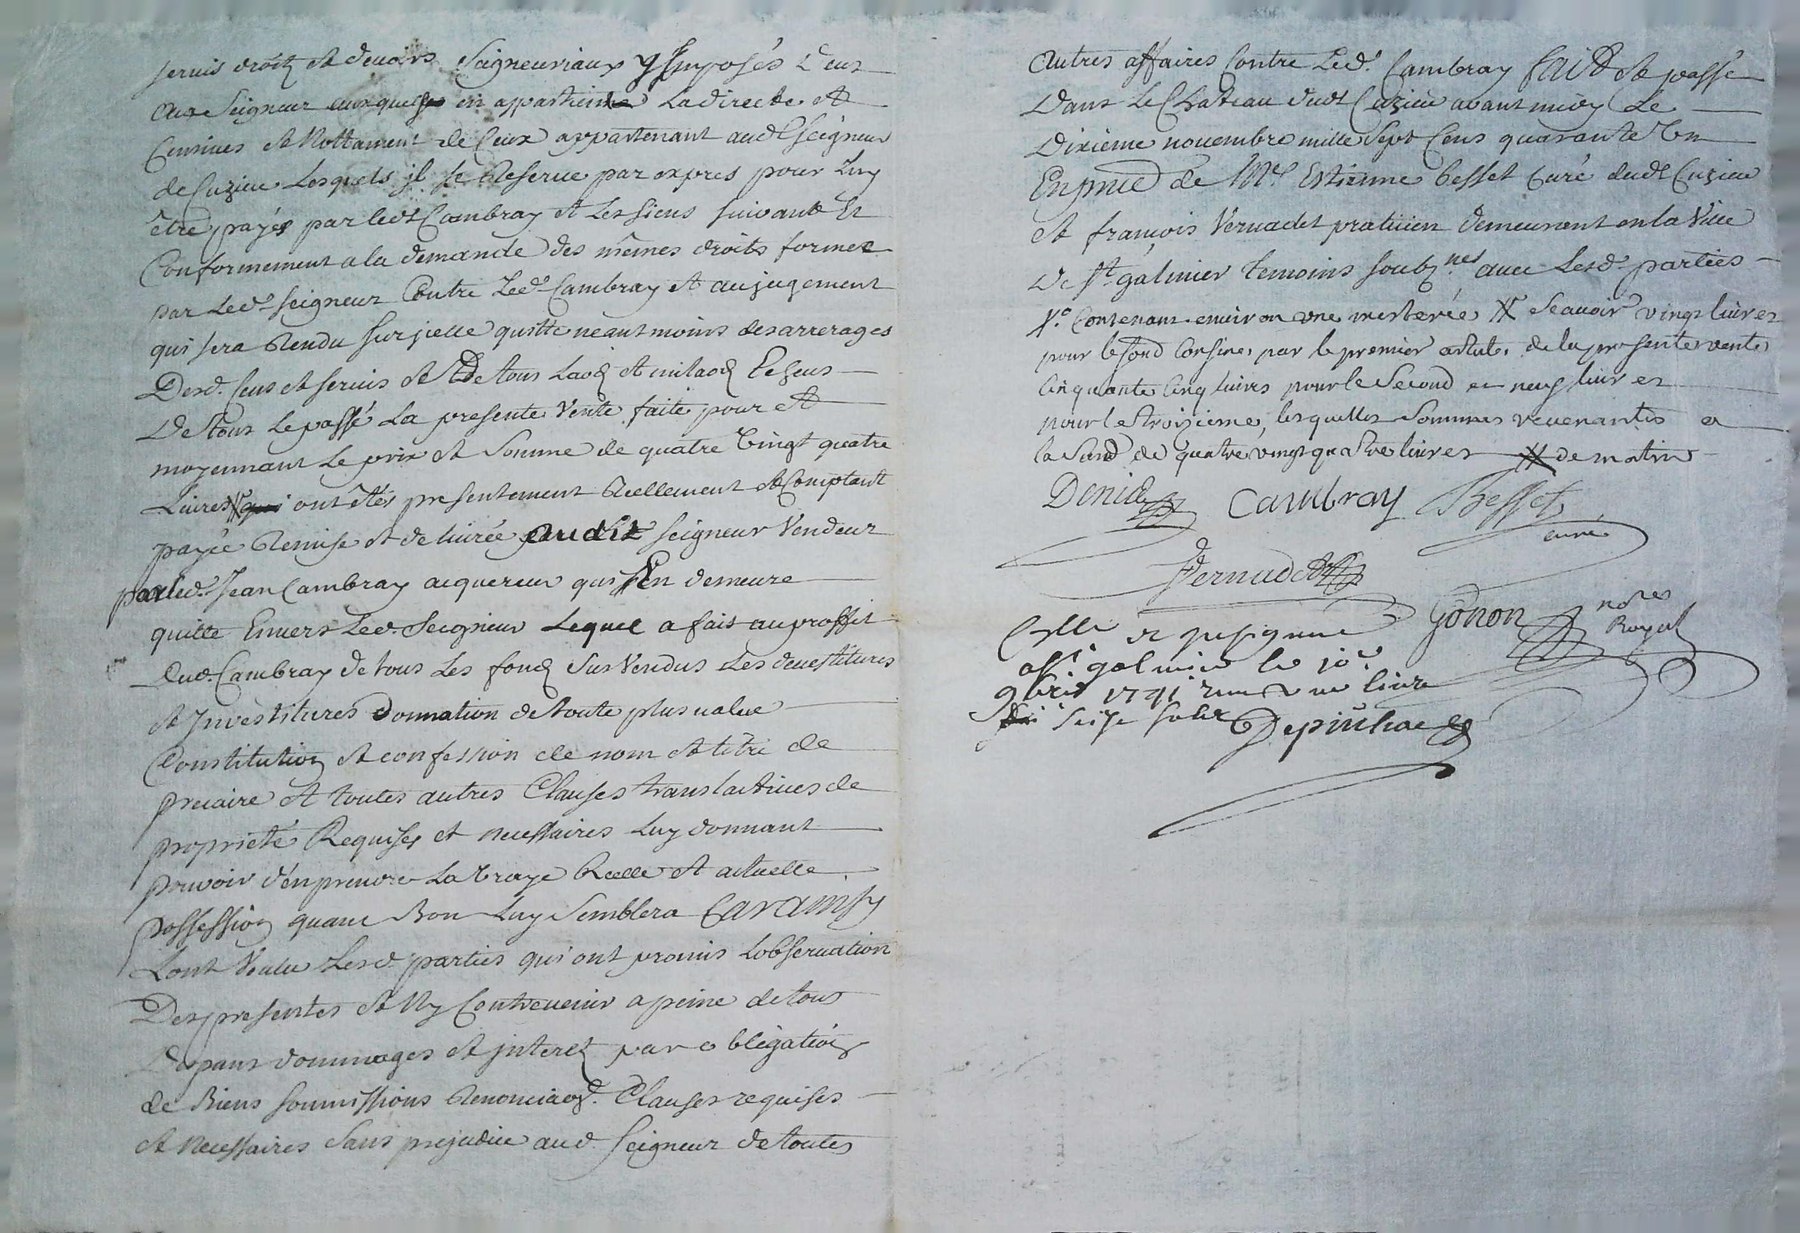 servis droitz et devoirs Seigneuriaux y Imposés Deus
aux Seigneur auxquels en appartient La directe et
Censives et Nottament de Ceux appartenant audt Seigneur
de Cuzieu Lesquels jl se Reserve par expres pour Luy
être payés par ledt Cambray et Les siens suivant Et
Conformement a la demande des mêmes droits formez
par Led. seigneur Contre Led. Cambray et au jugement
qui sera Rendu sur jcelle quitte neantmoins des arrerages
Desd. Cens et servis et de tous Laodz et milaodz Echeus
De tout le passé La presente Vente faite pour et
moyennant Le prix et Somme de quatre Vingt quatre
Livres ont êtés presentement Reellement et Comptant
payée Remise et delivrée audit Seigneur Vendeur
par led. Jean Cambray acquereur qui En demeure
quitte Envers Led. Seigneur Lequel a fait au proffit
Dud. Cambray de tous Les fondz sus Vendus Les devestitures
et Jnvestitures Donnation de toute plus value
Constitution et confession de nom et titre de
precaire et toutes autres Clauses translactives de
proprieté Requises et necessaires Luy donnant
pouvoir d'en prendre La Vraye Reelle et actuelle
possession quant Bon Luy Semblera Car ainsy
Lont Voulu Lesd. parties qui ont promis Lobservation
Des presentes et Ny Contrevenir a peine de tous
Depans dommages et jnteretz par obligation
de Biens soumissions Renonciaõn. Clauses requises
et necessaires Sans prejudice aud. Seigneur de toutes
autres affaires Contre Led. Cambray fait et passé
Dans Le Chateau dudt Cuzieu avant midy Le
Dixieme novembre mille Sept Cens quarante Un
En pnce de Mre Estienne Besset Curé dudt Cuzieu
et françois Vernadet praticien demeurant en la Ville
de St galmier temoins soubz.nés avec Lesd. parties
Contenant environ une mesterée Scavoir vingt livres
pour le fond Confiné par le premier article de la presente vente
Cinquante Cinq livres pour le Second et neuf livres
pour le troisieme, lesquelles Sommes revenantes a
la Susd. de quatre vingt quatre livres de matin
Denis Cambray Besset
curé
Vernadet
Gonon nore
Royal
Collé et
a St galmier le 10e
9bre 1741 une livre
seize sols Depinhac